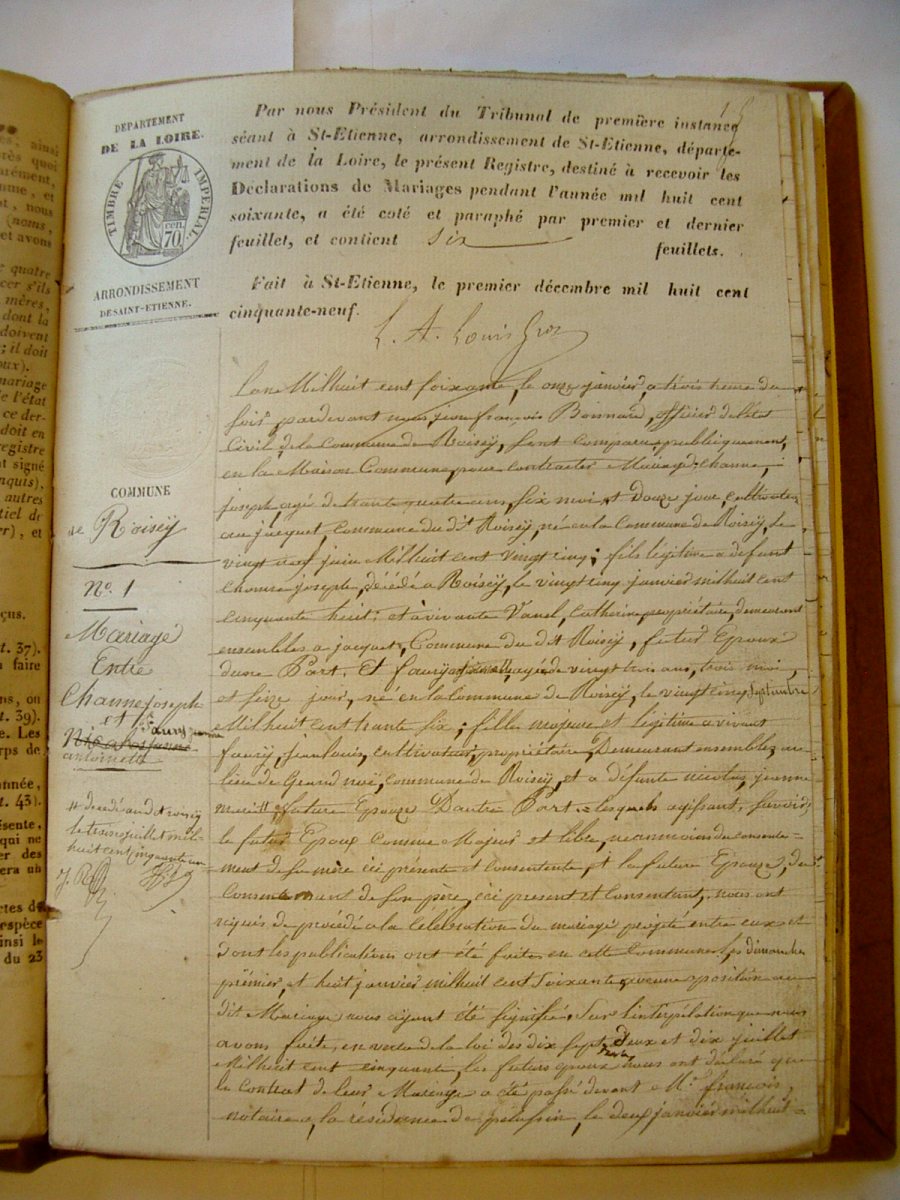 DEPARTEMENT
DE LA LOIRE.
TIMBRE IMPÉRIAL.
70 cen.
ARRONDISSEMENT
DE SAINT-ETIENNE.
Par nous Président du Tribunal de première instance
séant à St-Etienne, arrondissement de St-Etienne, départe-
ment de la Loire, le présent Registre, destiné à recevoir les
Déclarations de Mariages pendant l'année mil huit cent
soixante, a été coté et paraphé par premier et dernier
feuillet, et contient six feuillets.
Fait à St-Etienne, le premier décembre mil huit cent
cinquante-neuf.
COMMUNE
de Roisey
No. 1
Mariage
Entre
Channe joseph
et faury jeanne
antoinette
# decedé audit roisey
le treize juillet mil
huit cent cinquante un
Lan Milhuit cent soixante, le onze janvier, a trois heure du
soir pardevant nous jean françois Bonnard, officier deletat
Civil, de la Commune de Roisey, sont comparu publiquement,
en la Maison Commune, pour contracter Mariage, Channe,
joseph, agé de trante quatre ans, six mois, et Douze jour, cultivateur
au jacquet, Commune du dit Roisey, né en la Commune de Roisey, le
vingt neuf juin Milhuit cent vingt cinq; fils légitime a défunt
Channe joseph, décédé a Roisey, le vingt cinq janvier milhuit cent
cinquante huit; et a vivante Vanel, Catherine, propriétaire, demeurant
ensembles a jacquet, Commune du dit Roisey, futur Epoux
dune Part. Et faury, agé de vingt trois ans, trois mois,
et seize jour, né en la Commune de Roisey, le vingt cinq septembre
Milhuit cent trante six; fille majeure et légitime a vivant
faury, jean louis, cultivateur, propriétaire, Demeurant ensembles au
lieu de Grand noë, Commune de Roisey, et a défunte nicolas, jeanne
marie # future Epouze Dautre Part. lesquels agissant, savoir,
le futur Epoux Comme Majeur et libre, neanmoins du consente-
ment de sa mère ici présente et consentente, et la future Epouze, du
Consentement de son père, ici present et Consentant, nous ont
réquis de procédé a la Célébration du mariage projeté entre eux et
dont les publications ont été faites en cette Commune les dimanches
premier, et huit janvier milhuit cent soixante, aucune oposition au
dit Mariage nous ayant été signifiée, Sur l'interpélation que nous
avons faite, en vertu de la loi des dix sept, deux et dix juillet
Milhuit cent cinquante, les futurs epoux nous ont déclaré que
le Contrat de leur Mariage a été passé devant Me. françois,
notaire a la résidence de pelussin, le deux janvier milhuit